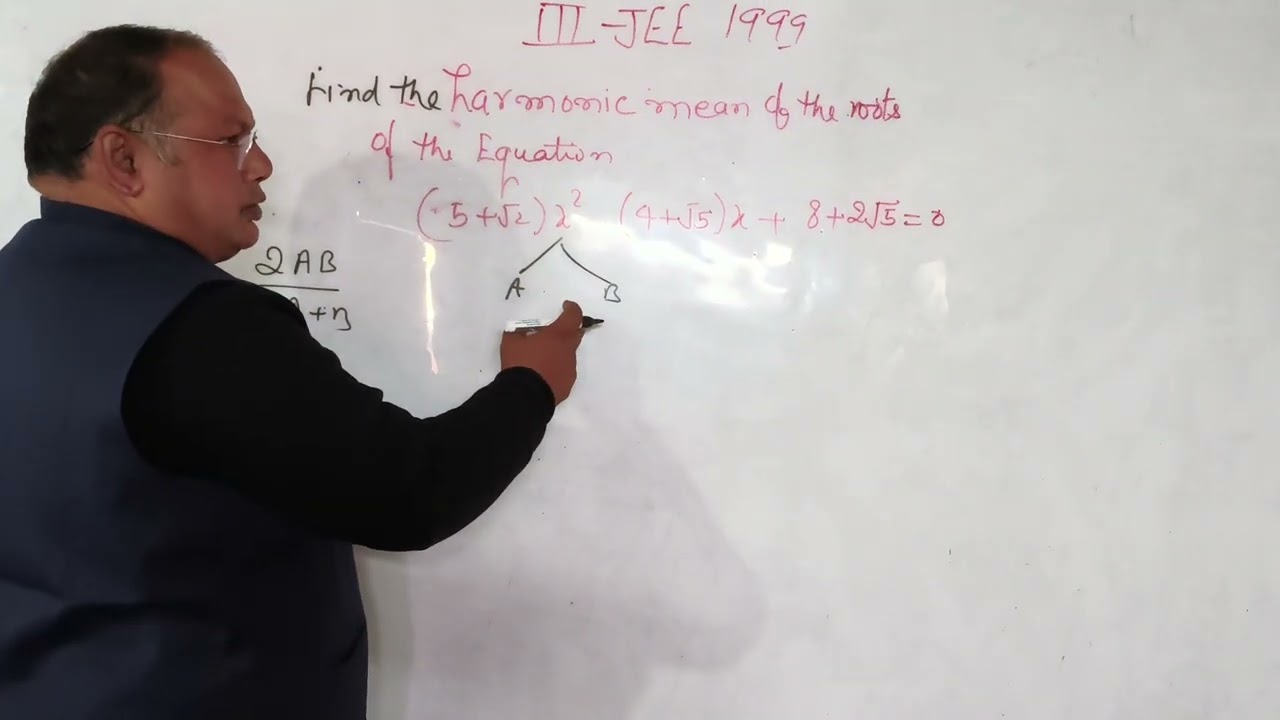 III-JEE 1999
Find the harmonic mean of the roots
of the Equation
(5+√2)x² (4+√5)x + 8+2√5=0
2AB
+B
A B